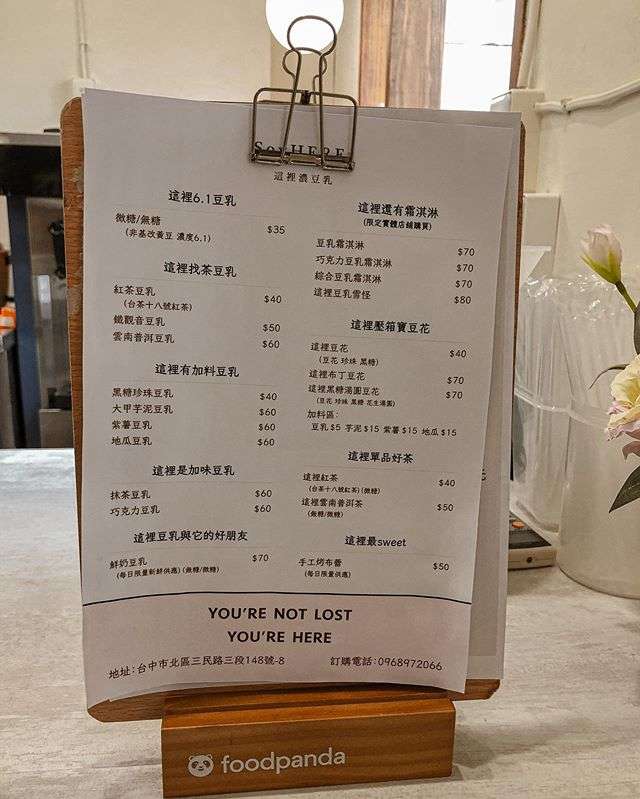 SoyHERE
這裡濃豆乳
這裡6.1豆乳
微糖/無糖 $35
(非基改黃豆 濃度6.1)
這裡找茶豆乳
紅茶豆乳 $40
(台茶十八號紅茶)
鐵觀音豆乳 $50
雲南普洱豆乳 $60
這裡有加料豆乳
黑糖珍珠豆乳 $40
大甲芋泥豆乳 $60
紫薯豆乳 $60
地瓜豆乳 $60
這裡是加味豆乳
抹茶豆乳 $60
巧克力豆乳 $60
這裡豆乳與它的好朋友
鮮奶豆乳 $70
(每日限量新鮮供應) (無糖/微糖)
這裡還有霜淇淋
(限定實體店鋪購買)
豆乳霜淇淋 $70
巧克力豆乳霜淇淋 $70
綜合豆乳霜淇淋 $70
這裡豆乳雪怪 $80
這裡壓箱寶豆花
這裡豆花 $40
(豆花 珍珠 黑糖)
這裡布丁豆花 $70
這裡黑糖湯圓豆花 $70
(豆花 珍珠 黑糖 花生湯圓)
加料區:
豆乳$5 芋泥$15 紫薯$15 地瓜$15
這裡單品好茶
這裡紅茶 $40
(台茶十八號紅茶) (微糖)
這裡雲南普洱茶 $50
(無糖/微糖)
這裡最sweet
手工烤布蕾 $50
(每日限量供應)
YOU'RE NOT LOST
YOU'RE HERE
地址:台中市北區三民路三段148號-8 訂購電話:0968972066
foodpanda